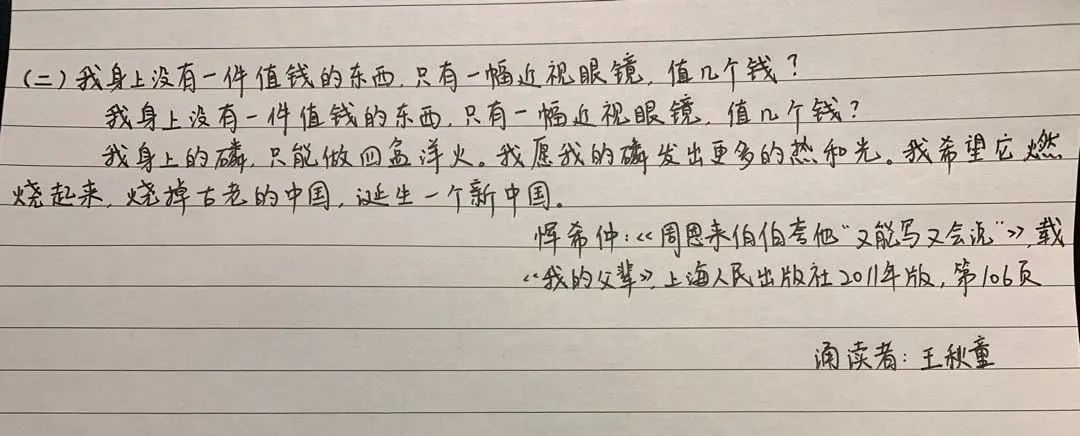 (二)我身上没有一件值钱的东西,只有一幅近视眼镜,值几个钱?
我身上没有一件值钱的东西,只有一幅近视眼镜,值几个钱?
我身上的磷,只能做四盒洋火。我愿我的磷发出更多的热和光。我希望它燃
烧起来,烧掉古老的中国,诞生一个新中国。
恽希仲:《周恩来伯伯夸他“又能写又会说”》,载
《我的父辈》,上海人民出版社2011年版,第106页
诵读者:王秋童